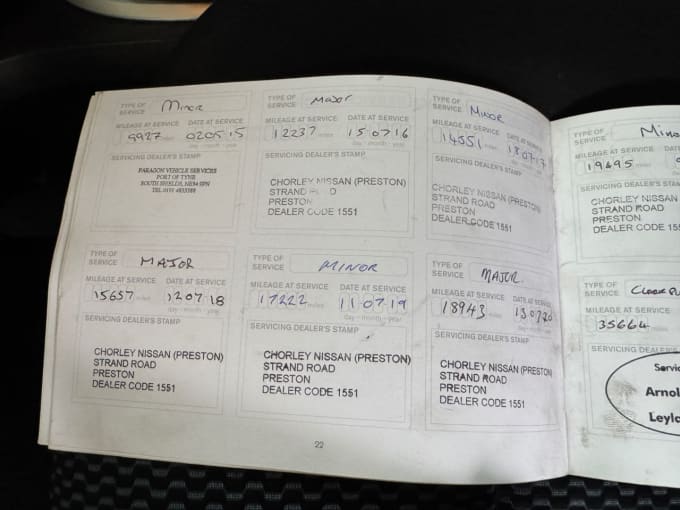 TYPE OF SERVICE Minor
MILEAGE AT SERVICE DATE AT SERVICE
9927 miles 020515
day - month - year
SERVICING DEALER'S STAMP
PARAGON VEHICLE SERVICES
PORT OF TYNE
SOUTH SHIELDS, NE34 9PN
TYPE OF SERVICE Major
MILEAGE AT SERVICE DATE AT SERVICE
12237 miles 150716
day - month - year
SERVICING DEALER'S STAMP
CHORLEY NISSAN (PRESTON)
STRAND ROAD
PRESTON
DEALER CODE 1551
TYPE OF SERVICE Minor
MILEAGE AT SERVICE DATE AT
14551 miles 180717
SERVICING DEALER'S STAMP
CHORLEY NISSAN (PRESTON)
STRAND ROAD
PRESTON
DEALER CODE 1551
TYPE OF SERVICE MAJOR
MILEAGE AT SERVICE DATE AT SERVICE
15657 miles 120718
day - month - year
SERVICING DEALER'S STAMP
CHORLEY NISSAN (PRESTON)
STRAND ROAD
PRESTON
DEALER CODE 1551
TYPE OF SERVICE MINOR
MILEAGE AT SERVICE DATE AT SERVICE
17222 miles 110719
day - month - year
SERVICING DEALER'S STAMP
CHORLEY NISSAN (PRESTON)
STRAND ROAD
PRESTON
DEALER CODE 1551
TYPE OF SERVICE MAJOR
MILEAGE AT SERVICE DATE AT SERVICE
18943 miles 130720
day - month - year
SERVICING DEALER'S STAMP
CHORLEY NISSAN (PRESTON)
STRAND ROAD
PRESTON
DEALER CODE 1551
22
TYPE OF SERVICE Mino
MILEAGE AT SERVICE
19495 miles
SERVICING DEALER'S STAMP
CHORLEY NISSAN
STRAND ROAD
PRESTON
DEALER CODE 155
TYPE OF SERVICE
MILEAGE AT SERVICE
35664 miles
SERVICING DEALER'S
Servic
Arnol
Leyla